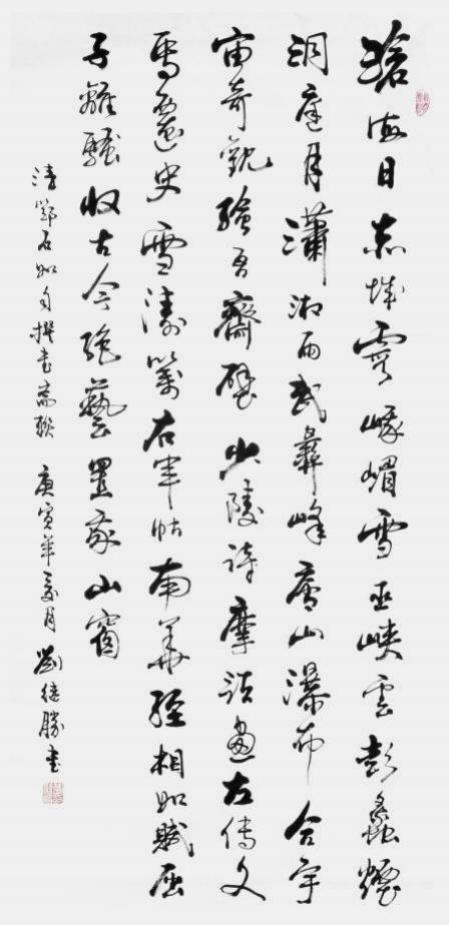 滄海日赤城霞峨嵋雪巫峽雲彭蠡煙
洞庭月瀟湘雨武彝峰廬山瀑布合宇
宙奇觀繪吾齋壁少陵詩摩詰畫左傳文
馬遷史雪濤箋右軍帖南華經相如賦屈
子離騷收古今絕藝置我山窗
清鄧石如自撰書齋聯 庚寅年月 劉继勝書